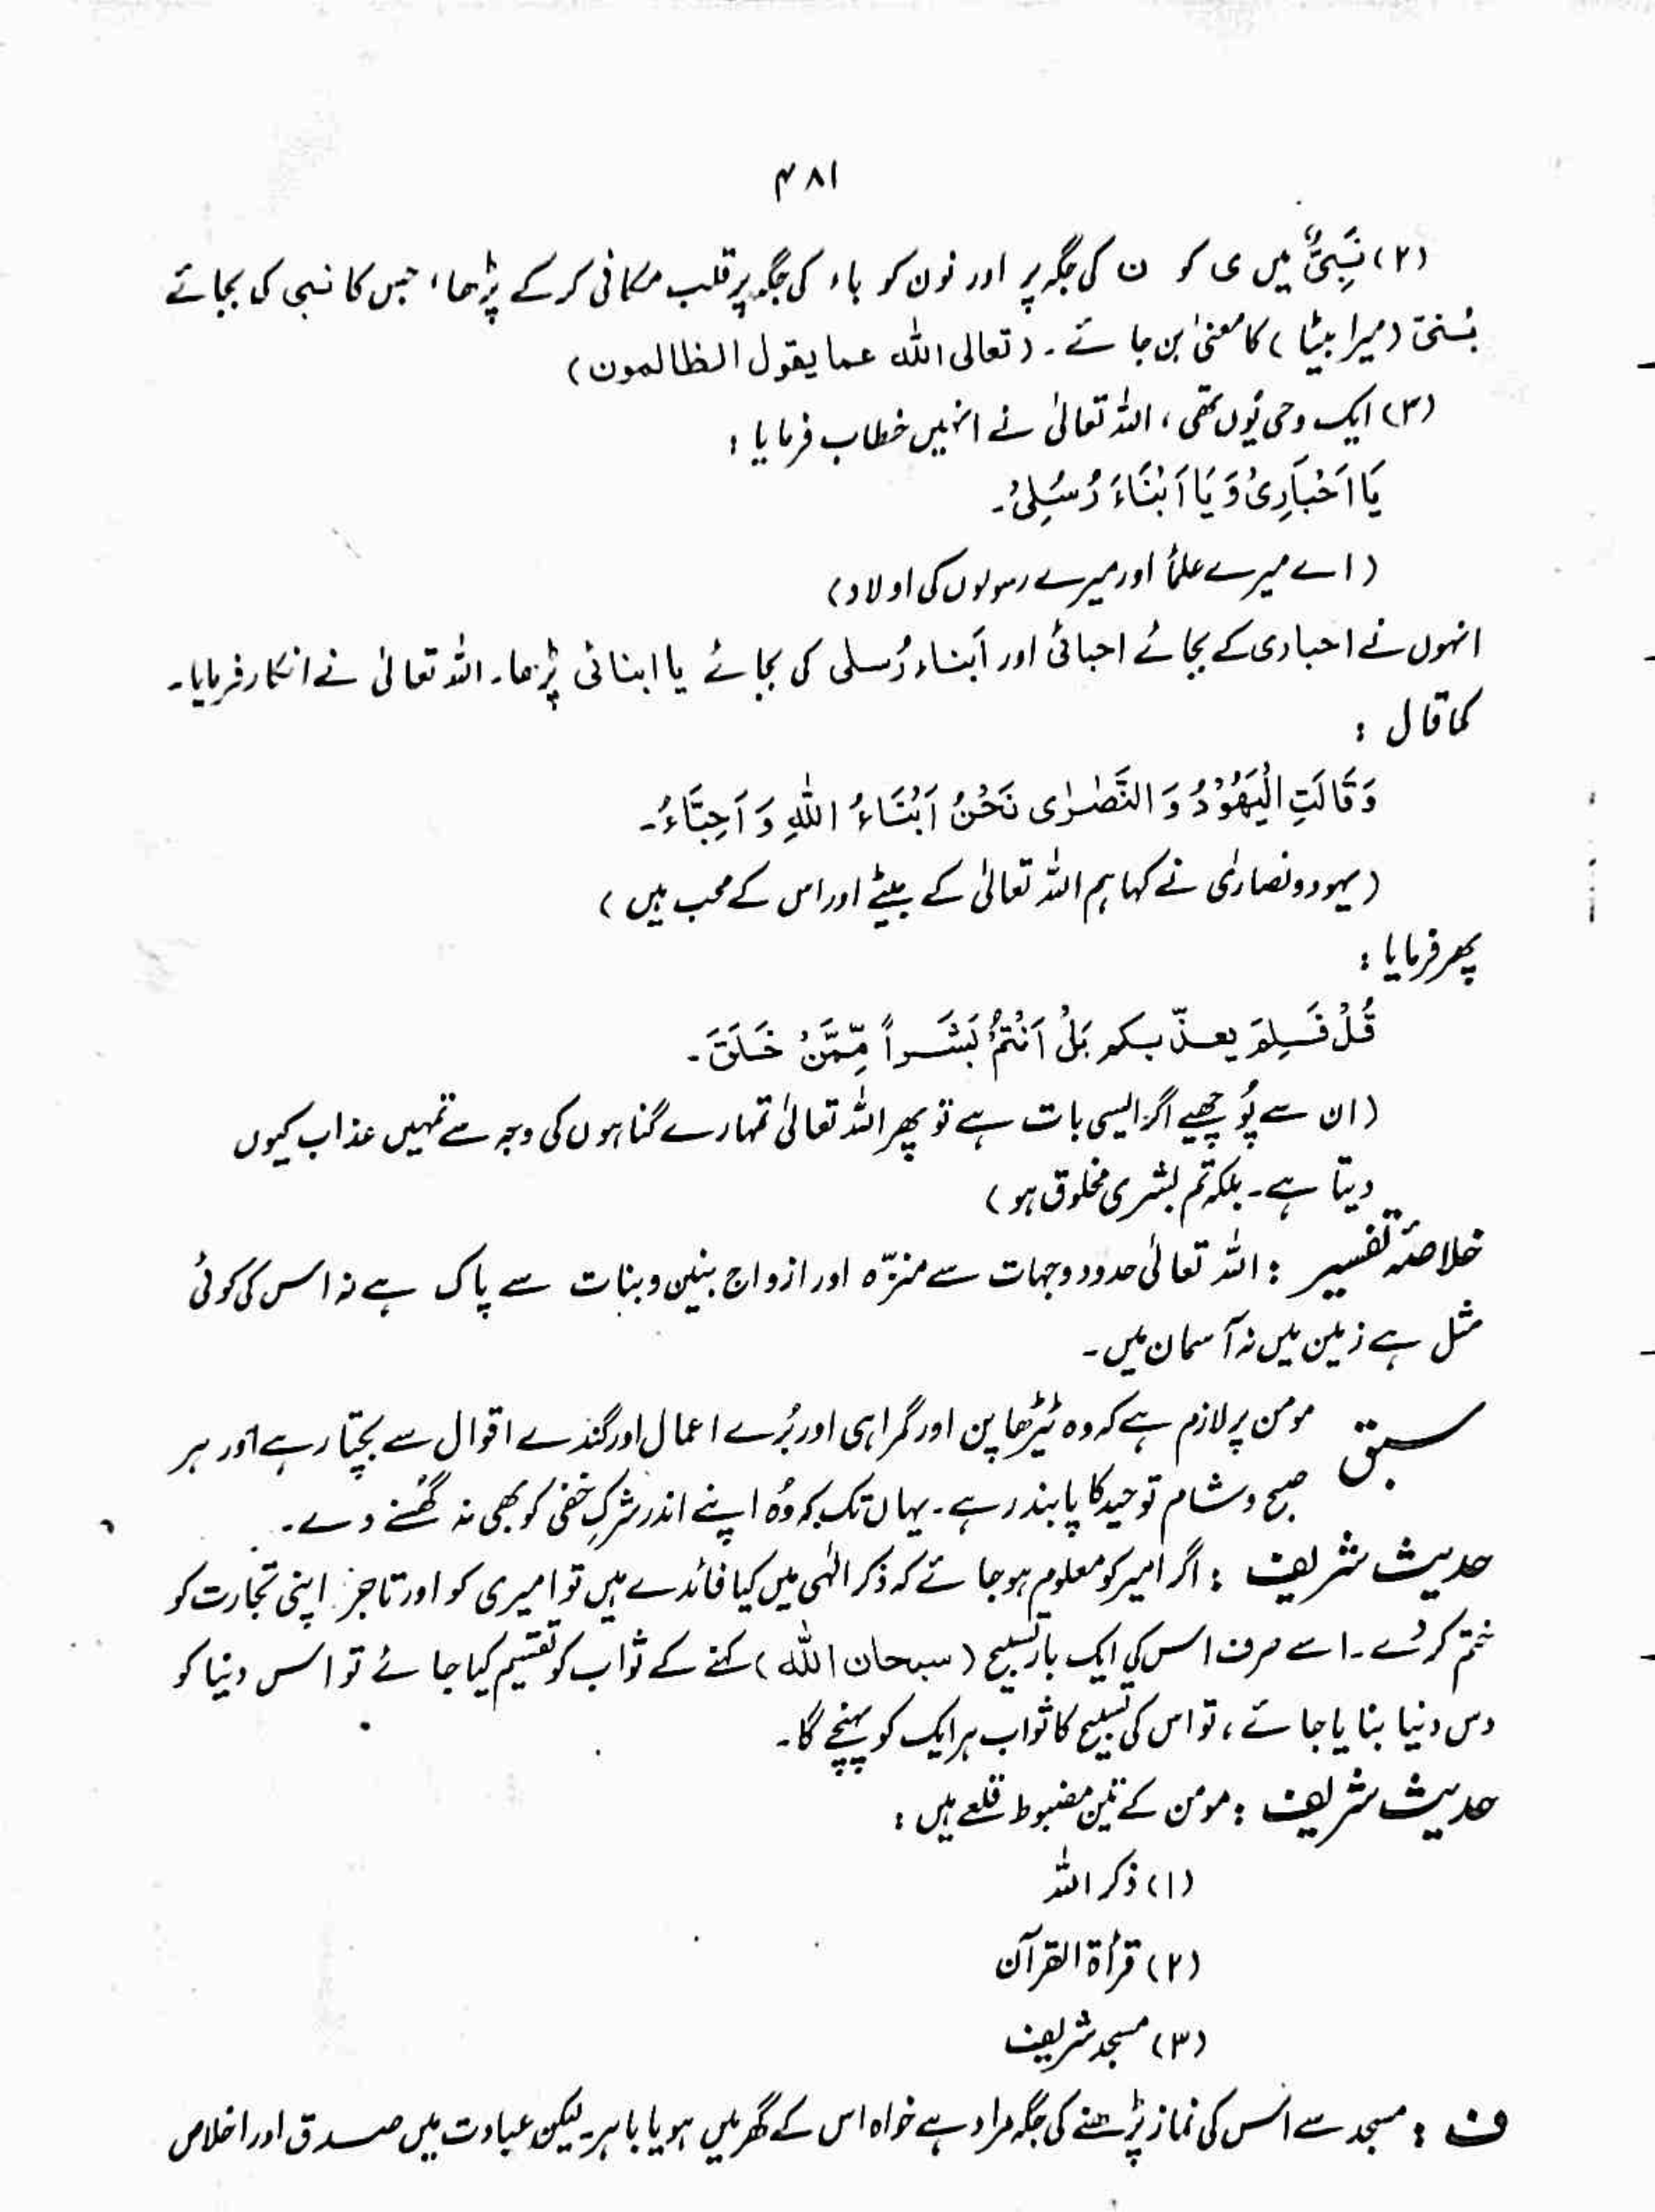 ۴۸۱
(۲) نَبِیٌّ میں ی کو ن کی جگہ پر اور نون کو باء کی جگہ پر قلب مکانی کر کے پڑھا، جس کا نبی کی بجائے
بُنَیَّ (میرا بیٹا) کا معنیٰ بن جائے۔ (تعالی اللہ عما یقول الظالمون)
(۳) ایک وحی یُوں تھی، اللہ تعالیٰ نے انہیں خطاب فرمایا :
یَا اَحْبَارِیْ وَ یَا اَبْنَاءَ رُسُلِیْ۔
(اے میرے علماُ اور میرے رسولوں کی اولاد)
انہوں نے احباری کے بجائے احبائی اور اَبناء رُسلی کی بجائے یا ابنائی پڑھا۔ اللہ تعالیٰ نے انکار فرمایا۔
کما قال :
وَقَالَتِ الْیَھُوْدُ وَ النَّصٰرٰی نَحْنُ اَبْنَاءُ اللّٰہِ وَ اَحِبَّاءُ۔
(یہود و نصاریٰ نے کہا ہم اللہ تعالیٰ کے بیٹے اور اس کے محب ہیں)
پھر فرمایا :
قُلْ فَلِمَ یعذّبکم بَلْ اَنْتُمْ بَشَراً مِّمَّنْ خَلَقَ۔
(ان سے پُوچھیے اگر ایسی بات ہے تو پھر اللہ تعالیٰ تمہارے گناہوں کی وجہ سے تمہیں عذاب کیوں
دیتا ہے۔ بلکہ تم بشری مخلوق ہو)
خلاصۂ تفسیر : اللہ تعالیٰ حدود و جہات سے منزّہ اور ازواج بنین و بنات سے پاک ہے نہ اس کی کوئی
مثل ہے زمین میں نہ آسمان میں۔
سبق مومن پر لازم ہے کہ وہ ٹیڑھا پن اور گمراہی اور بُرے اعمال اور گندے اقوال سے بچتا رہے اور ہر
صبح و شام توحید کا پابند رہے۔ یہاں تک کہ وُہ اپنے اندر شرکِ خفی کو بھی نہ گھُسنے دے۔
حدیث شریف : اگر امیر کو معلوم ہو جائے کہ ذکر الٰہی میں کیا فائدے ہیں تو امیری کو اور تاجر اپنی تجارت کو
ختم کر دے۔ اسے صرف اس کی ایک بار تسبیح (سبحان اللہ) کہنے کے ثواب کو تقسیم کیا جائے تو اس دنیا کو
دس دنیا بنایا جائے، تو اس کی تسبیح کا ثواب ہر ایک کو پہنچے گا۔
حدیث شریف : مومن کے تین مضبوط قلعے ہیں :
(۱) ذکر اللہ
(۲) قرأۃ القرآن
(۳) مسجد شریف
ف : مسجد سے اس کی نماز پڑھنے کی جگہ مراد ہے خواہ اس کے گھر میں ہو یا باہر۔ لیکن عبادت میں صدق اور اخلاص